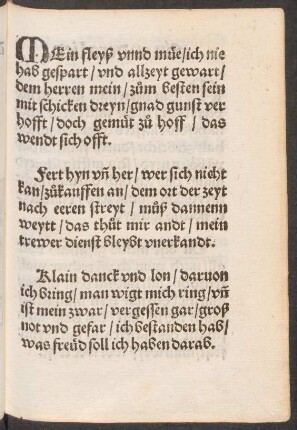 MEin fleyß vnnd müe/ich nie
hab gespart/ vnd allzeyt gewart/
dem herren mein/ zům besten sein
mit schicken dreyn/gnad gunst ver
hofft/ doch gemüt zů hoff/ das
wendt sich offt.
Fert hyn vñ her/ wer sich nicht
kan/zůkauffen an/ dem ort der zeyt
nach eeren streyt/ můß dannenn
weytt/ das thůt mir andt/ mein
trewer dienst bleybt vnerkandt.
Klain danck vnd lon/ daruon
ich bring/ man wigt mich ring/ vñ
ist mein zwar/ vergessen gar/groß
not vnd gefar/ ich bestanden hab/
was freüd soll ich haben darab.